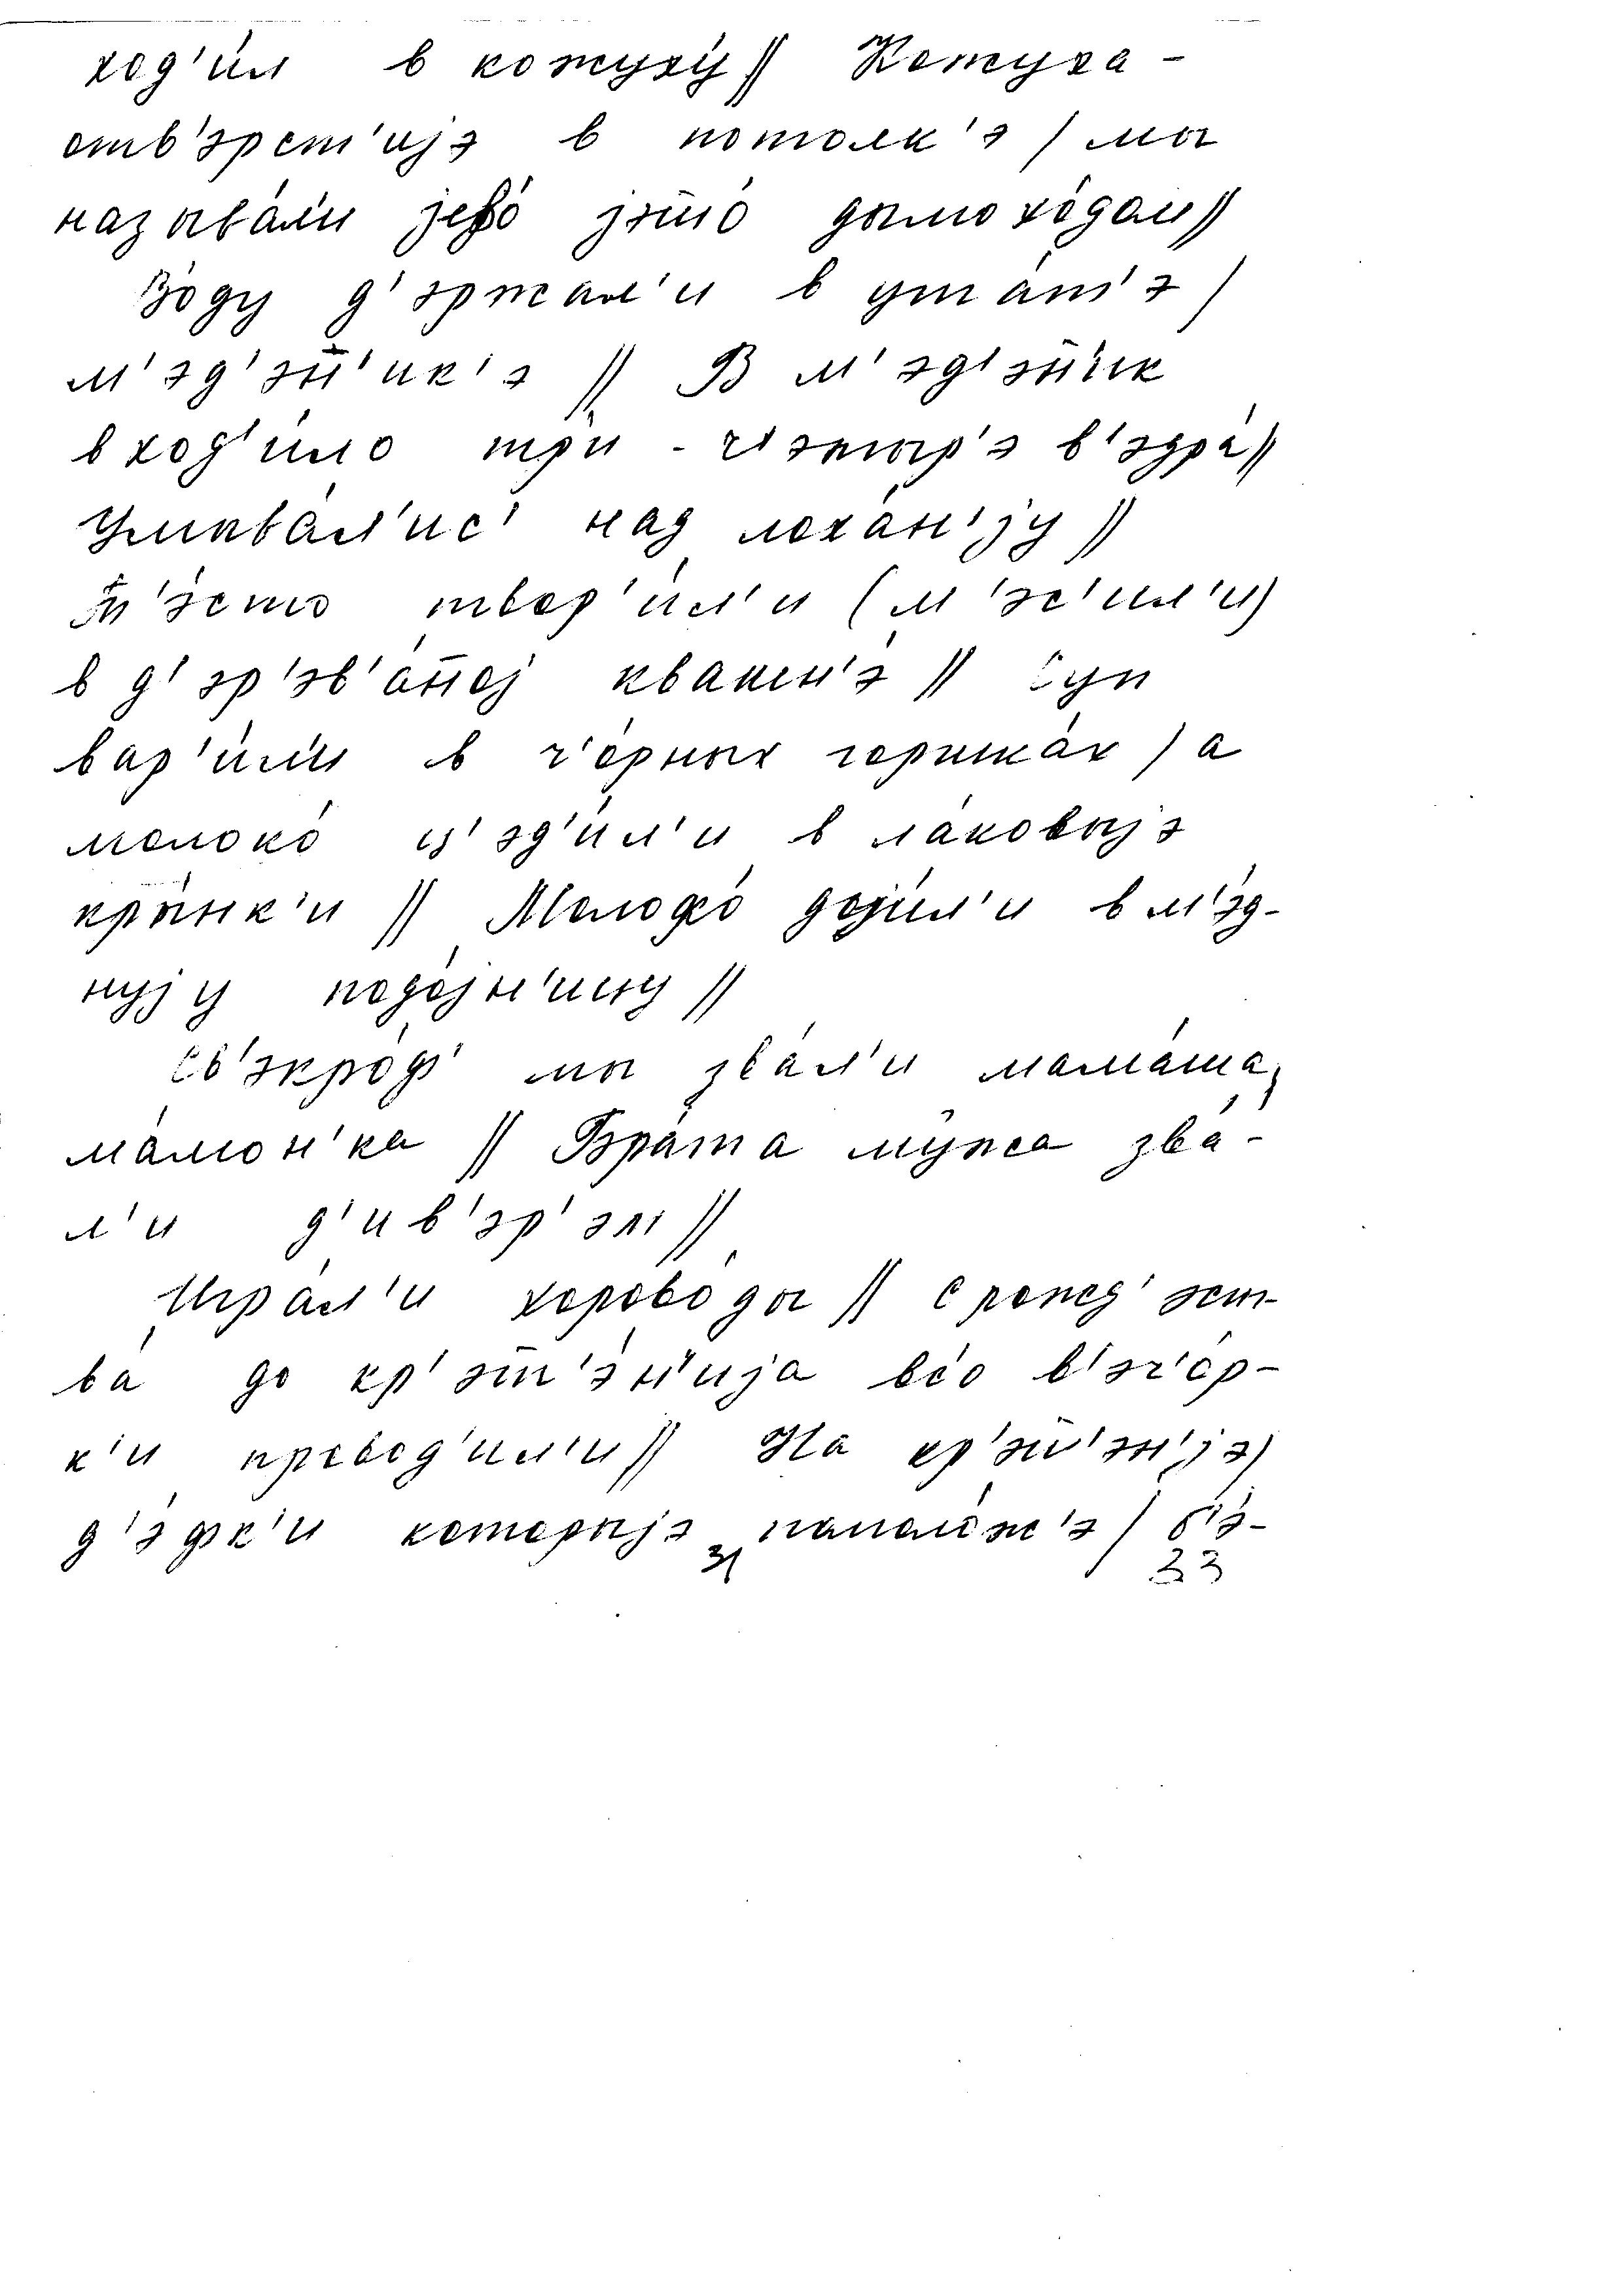 ход'ил в кожуху́ // Кожуха -
отв'эрст'ијэ в потолк'э / мы
называ́ли јево́ јэто́ дымохо́дам //
Во́ду д'эржал'и в уша́т'э /
м'эд'эн̄'ик'э // В м'эд'эн̄'ик
вход'и́ло три - ч'эты́р'э в'эдра́ //
Умыва́л'ис' над лоха́н'јy //
Т'э́сто твор'и́л'и (м'эс'и́л'и)
в д'эр'эв'а́н̄ој квашн'э́ // Суп
вар'и́ли в ч'о́рных горшка́х / а
молоко́ ц'эд'и́л'и в ла́ковыјэ
кры́нк'и // Молоко́ доји́л'и в м'э́д-
нују подо́јн'ицу //
Св'экро́ф' мы зва́л'и мама́ша,
ма́мон'ка // Бра́та му́жа зва́-
л'и д'ив'эр'эл' //
Игра́л'и хорово́ды // С рожд'эст-
ва́ до кр'эш̄'э́н'ија вс'о в'эч'о́р-
к'и провод'и́л'и // На кр'эш̄'э́н'јэ /
д'э́фк'и которыјэ напало́ж'э / б'э́-
33